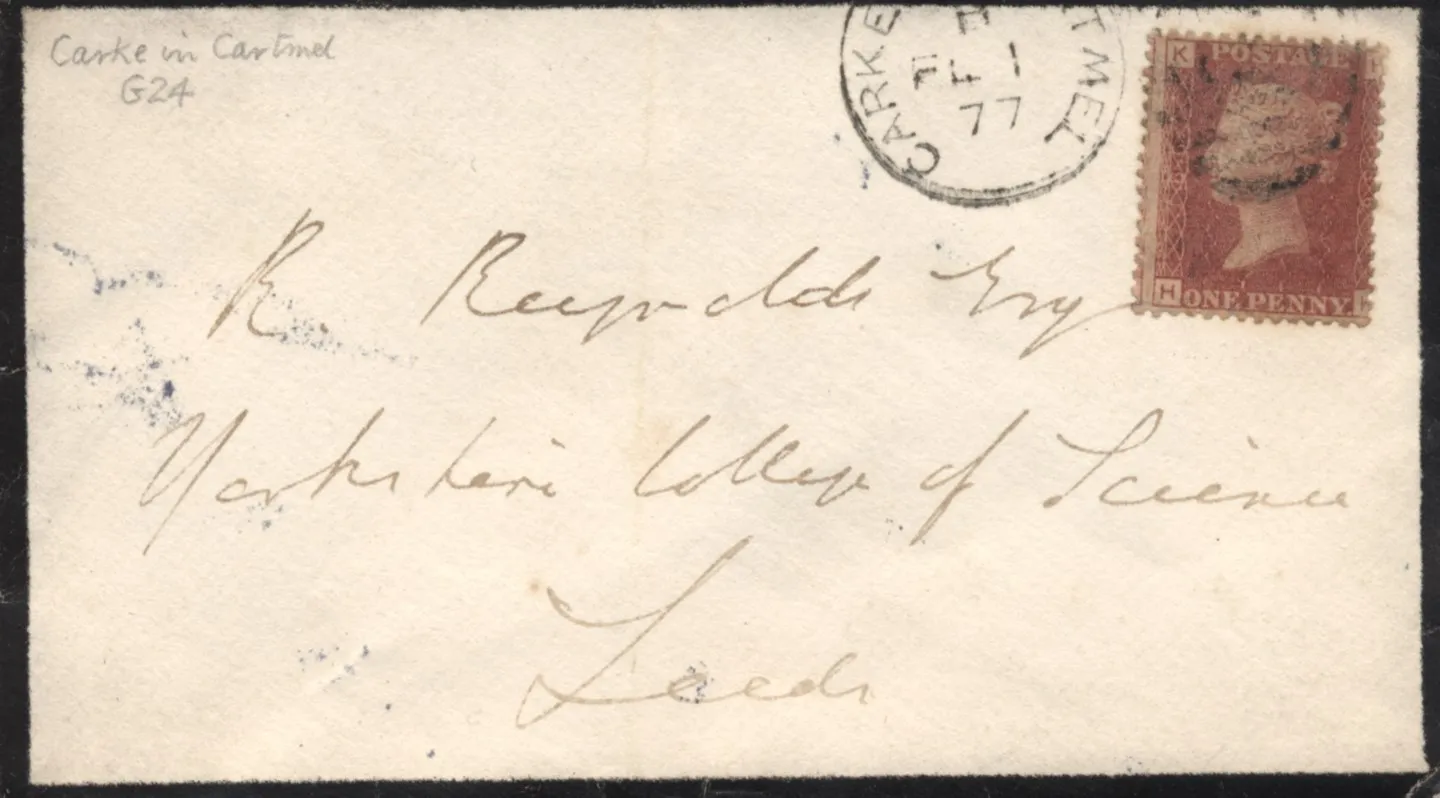 Carke in Cartmel
G24
CARKE TMEL
F 1
77
K POSTAGE
H ONE PENNY.
R. Reynolds Esq
Yorkshire College of Science
Leeds